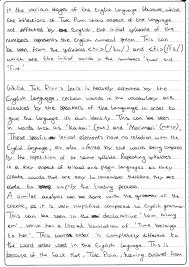 it the various stages of the English language. However, whilst
the inflections of Tok Pisin show aspects of the language
not affected by English, the initial syllable of the
numbers represents the English numeral system. This can
be seen from the syllables
which are the initial sounds in the numbers 'two' and
'five'.
Whilst Tok Pisin's lexis is heavily affected by the
English language, certain words in the vocabulary are
created by the speakers of the language in order to
give the language its own identity. This can be seen
in words such as 'kaikai' (eat) and
These specific lexical elements have no relation with the
English language, as also inferred by the words being company
by the repetition of the same syllable. Repeating syllables
is a key aspect of Creole and pidgin languages as they
create words that are easy to remember therefore they are
able to simplify the learning process.
A similar analysis can be done with the grammar of the
creole, as it is very simplified compared to English grammar.
This can be seen in the declarative
which has a literal translation of 'time belongs
to me'. This words order is completely different to
the word order used in the English language. This is
because of the fact that, Tok Pisin, having evolved from